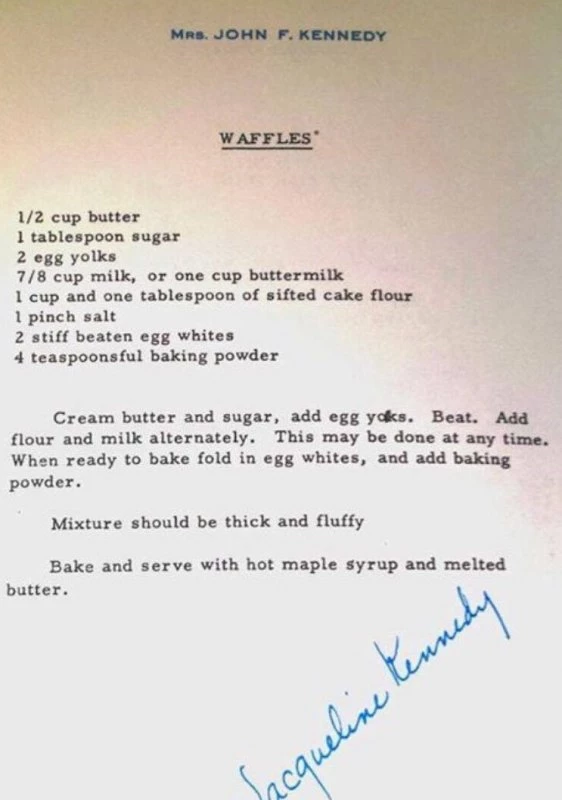 MRS. JOHN F. KENNEDY
WAFFLES*
1/2 cup butter
1 tablespoon sugar
2 egg yolks
7/8 cup milk, or one cup buttermilk
1 cup and one tablespoon of sifted cake flour
1 pinch salt
2 stiff beaten egg whites
4 teaspoonsful baking powder
Cream butter and sugar, add egg yoks. Beat. Add
flour and milk alternately. This may be done at any time.
When ready to bake fold in egg whites, and add baking
powder.
Mixture should be thick and fluffy
Bake and serve with hot maple syrup and melted
butter.
Jacqueline Kennedy